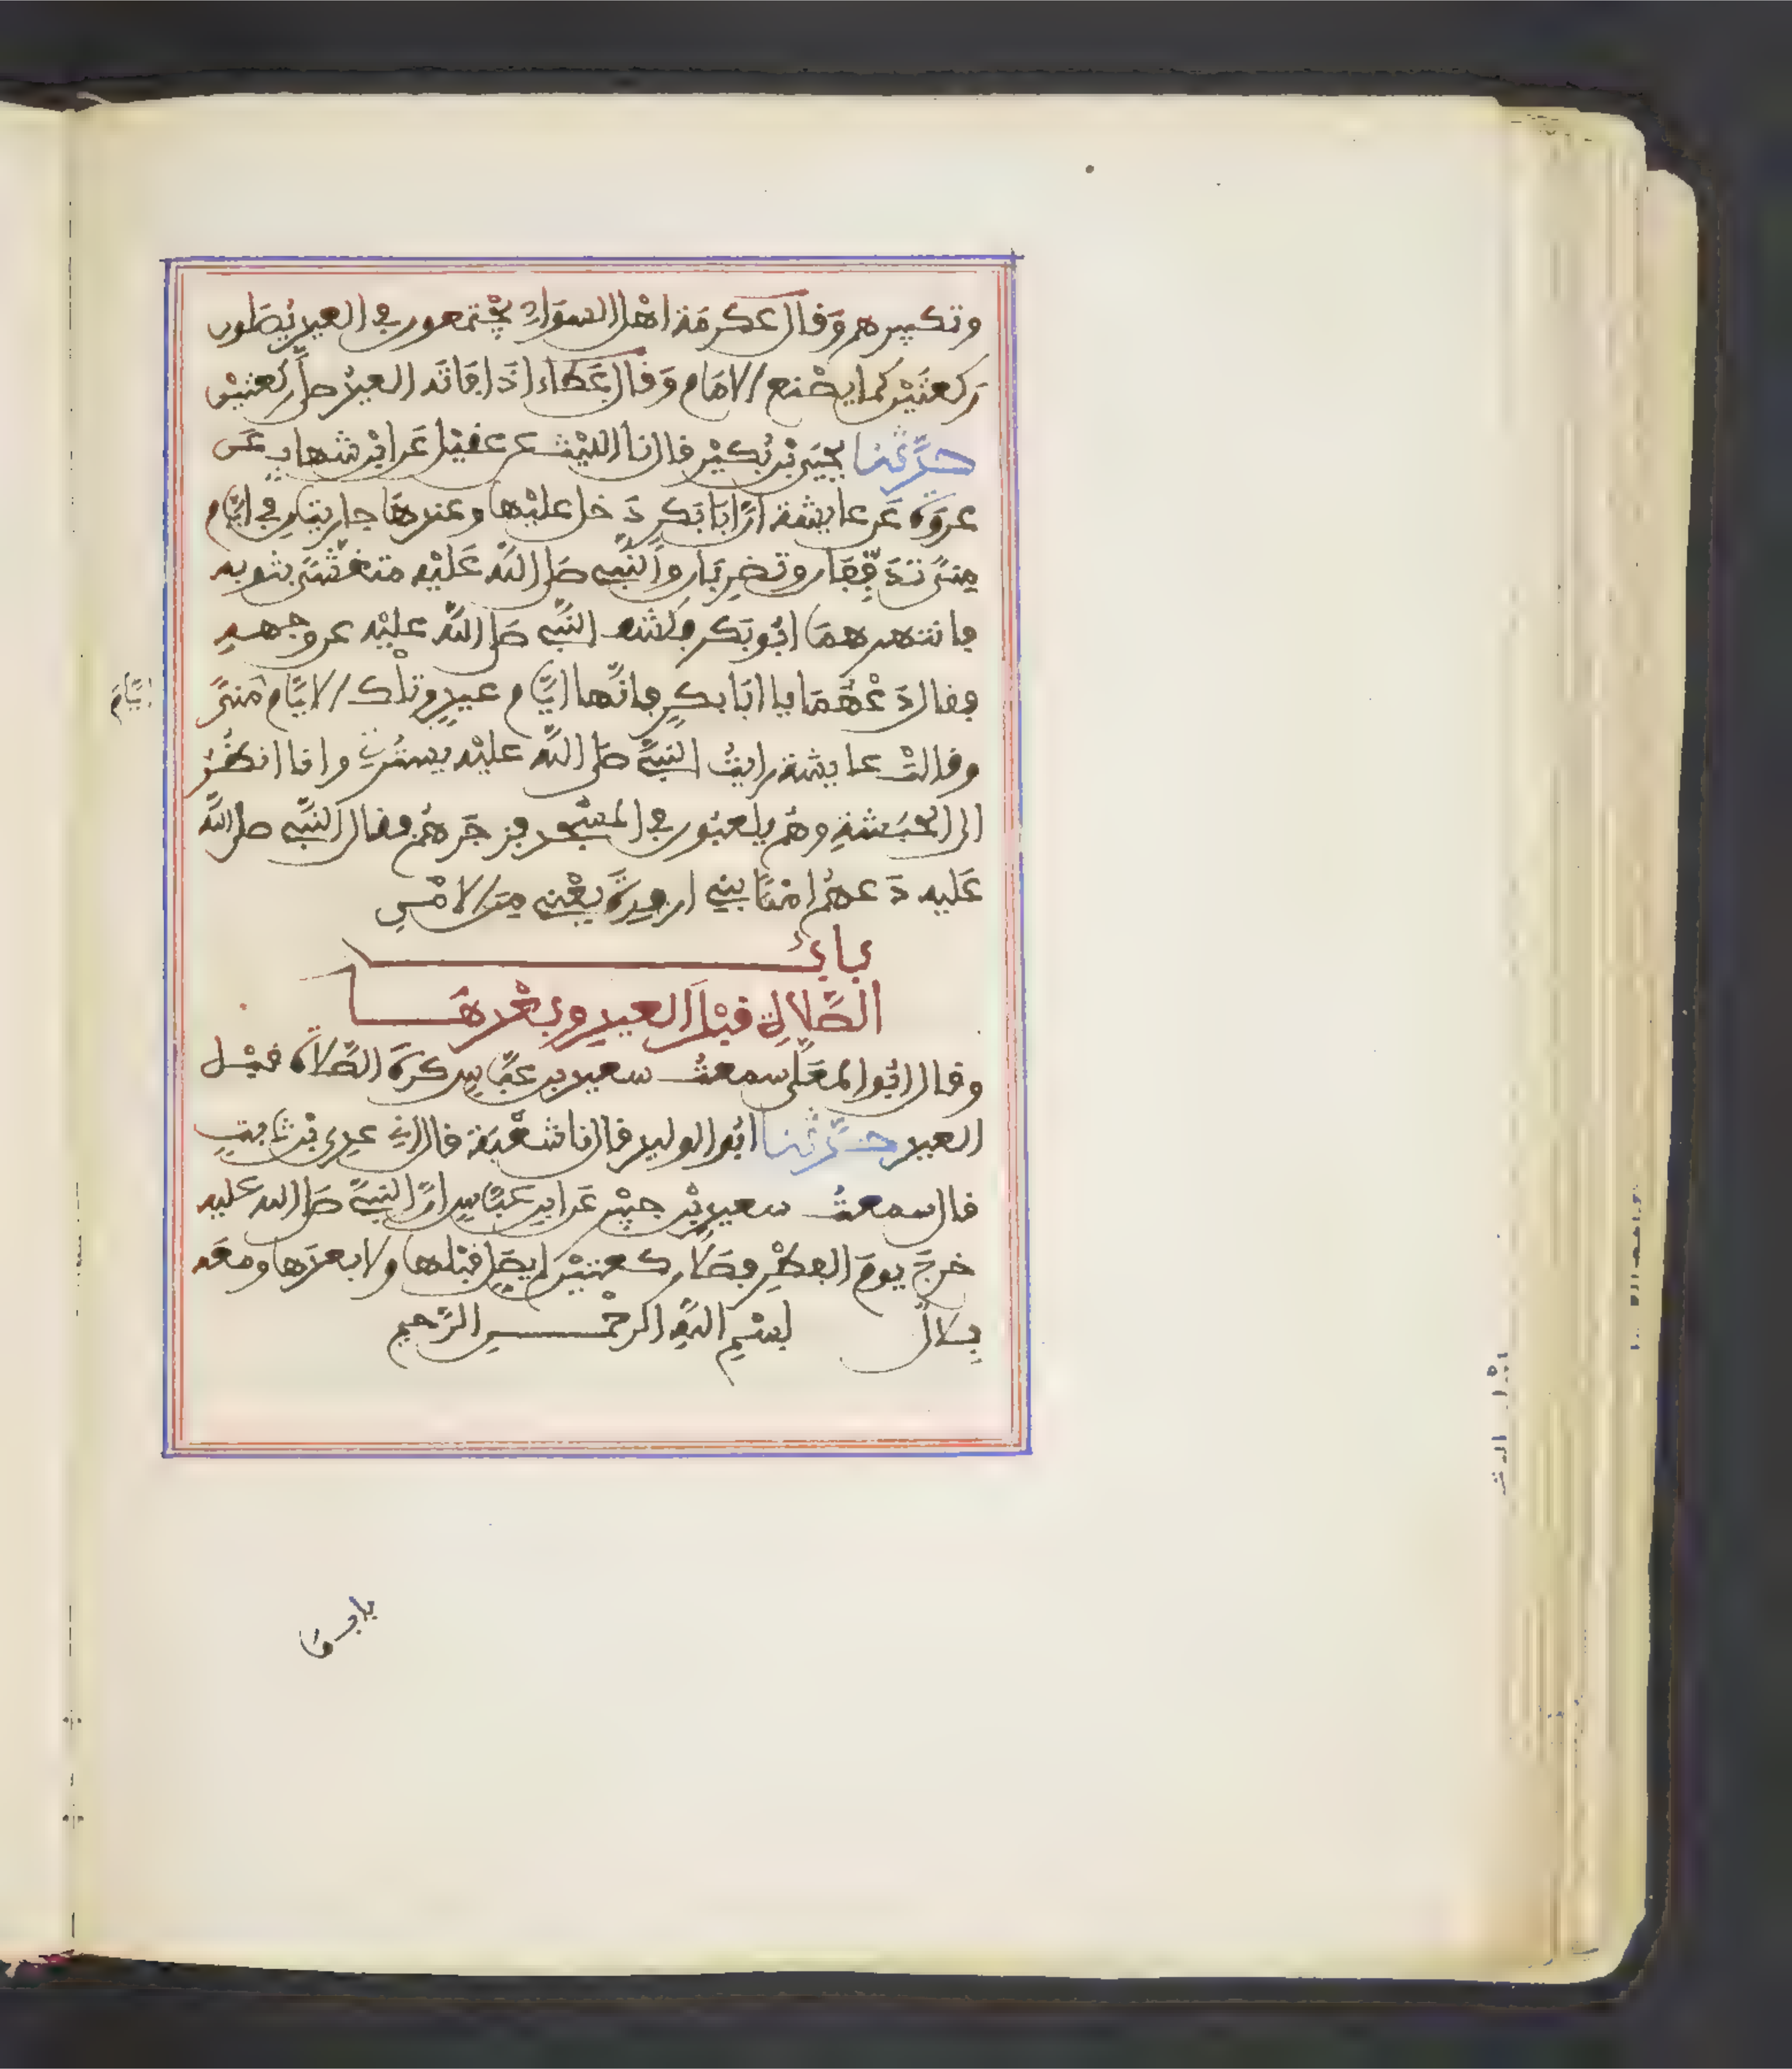 وتكبيرهم وَقال عكرمَة اهْل السوَادِ يجْتمعون في العيد يُصَلون
رَكعتَيْن كما يصْنع الامَام وَقال عَطَاء اذَا فاتَه العيدُ صلَّى ركعتيْن
حدَّثنا يحيَى بْن بُكيْر قال نا الليْث عن عقيْل عَن ابْن شهابٍ عَن
عروَة عَن عايشة انَّ ابَا بَكرٍ دَخل عليْها وعندهَا جاريتانِ في ايَّام
مِنىً تدَفّفَان وتضرِبَان والنَّبي صَلى اللَّه عَليْه متغشّىً بثوبه
فانتهرهمَا ابُو بَكر فكشف النَّبي صَلى اللَّه عليْه عن وجهه
فقال دَعْهُمَا يا ابَا بكرٍ فانَّها ايَّام عيدٍ وتلْك الايَّام مِنىً
ايَّامَ
وقالتْ عايشة رايتُ النَّبيَّ صَلى اللَّه عليْه يسْتُرني وانا انظُرُ
الى الحبَشةِ وهُم يلعبُون في المسْجد فزجَرهُم فقال النَّبي صلى اللَّه
عَليه دَعهُم امْنًا بني ارفدَةَ يعْني مِنَ الامْنِ
بابُ
الصَّلاةِ قبْلَ العيدِ وبعْدهَا
وقال ابُو المعَلَّى سمعتُ سعيد بن عبَّاسٍ كرهَ الصَّلاةَ قبْل
العيد حدَّثنا ابُو الوليد قال نا شعْبَة قال اني عدِي بْن ثابتٍ
قال سمعتُ سعيد بْن جبيْر عَن ابن عبَّاسٍ انَّ النبيَّ صَلى الله عليه
خرجَ يومَ الفطْرِ فصَلَّى ركعتيْن لم يصَلِّ قبْلها ولا بعدَها ومعَه
بِلالٌ بسْمِ اللَّهِ الرحْمنِ الرَّحيم